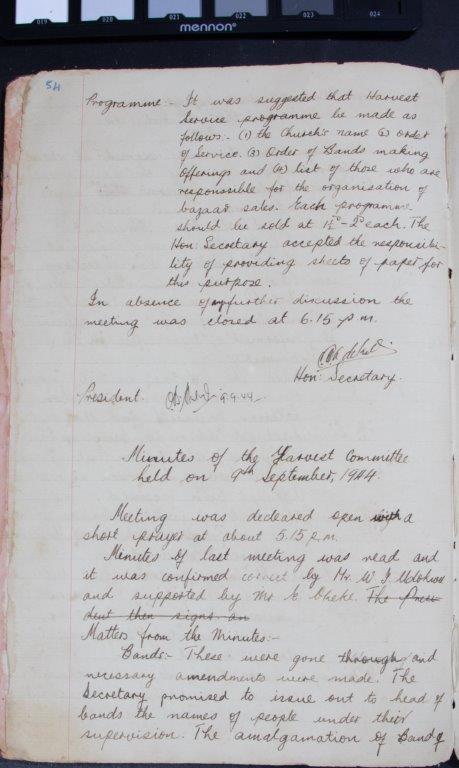 019 020 021 022 023 024
mennon®
54
Programme:- It was suggested that Harvest
Service programme be made as
follows:- (1) the Church's name (2) order
of Service. (3) Order of Bands making
Offerings and (4) list of those who are
responssible for the organisation of
bazaar sales. Each programme
should be sold at 1½ᴰ - 2ᴰ each. The
Hon: Secretary accepted the responsibi-
lity of providing sheets of paper for
this purpose.
In absence of any further discussion the
meeting was closed at 6.15 p.m.
Hon: Secretary.
President. 9.9.44
Minutes of the Harvest Committee
held on 9th September, 1944.
Meeting was decleared open with a
short prayer at about 5.15 p.m.
Minutes of last meeting was read and
it was confirmed correct by Mr. W. I.
and supported by Mr E. Okeke. The Presi-
dent then signs an
Matters from the Minutes:-
Bands:- These were gone through and
necessary amendments were made. The
Secretary promised to issue out to head of
bands the names of people under their
supervision. The amalgamation of Band of